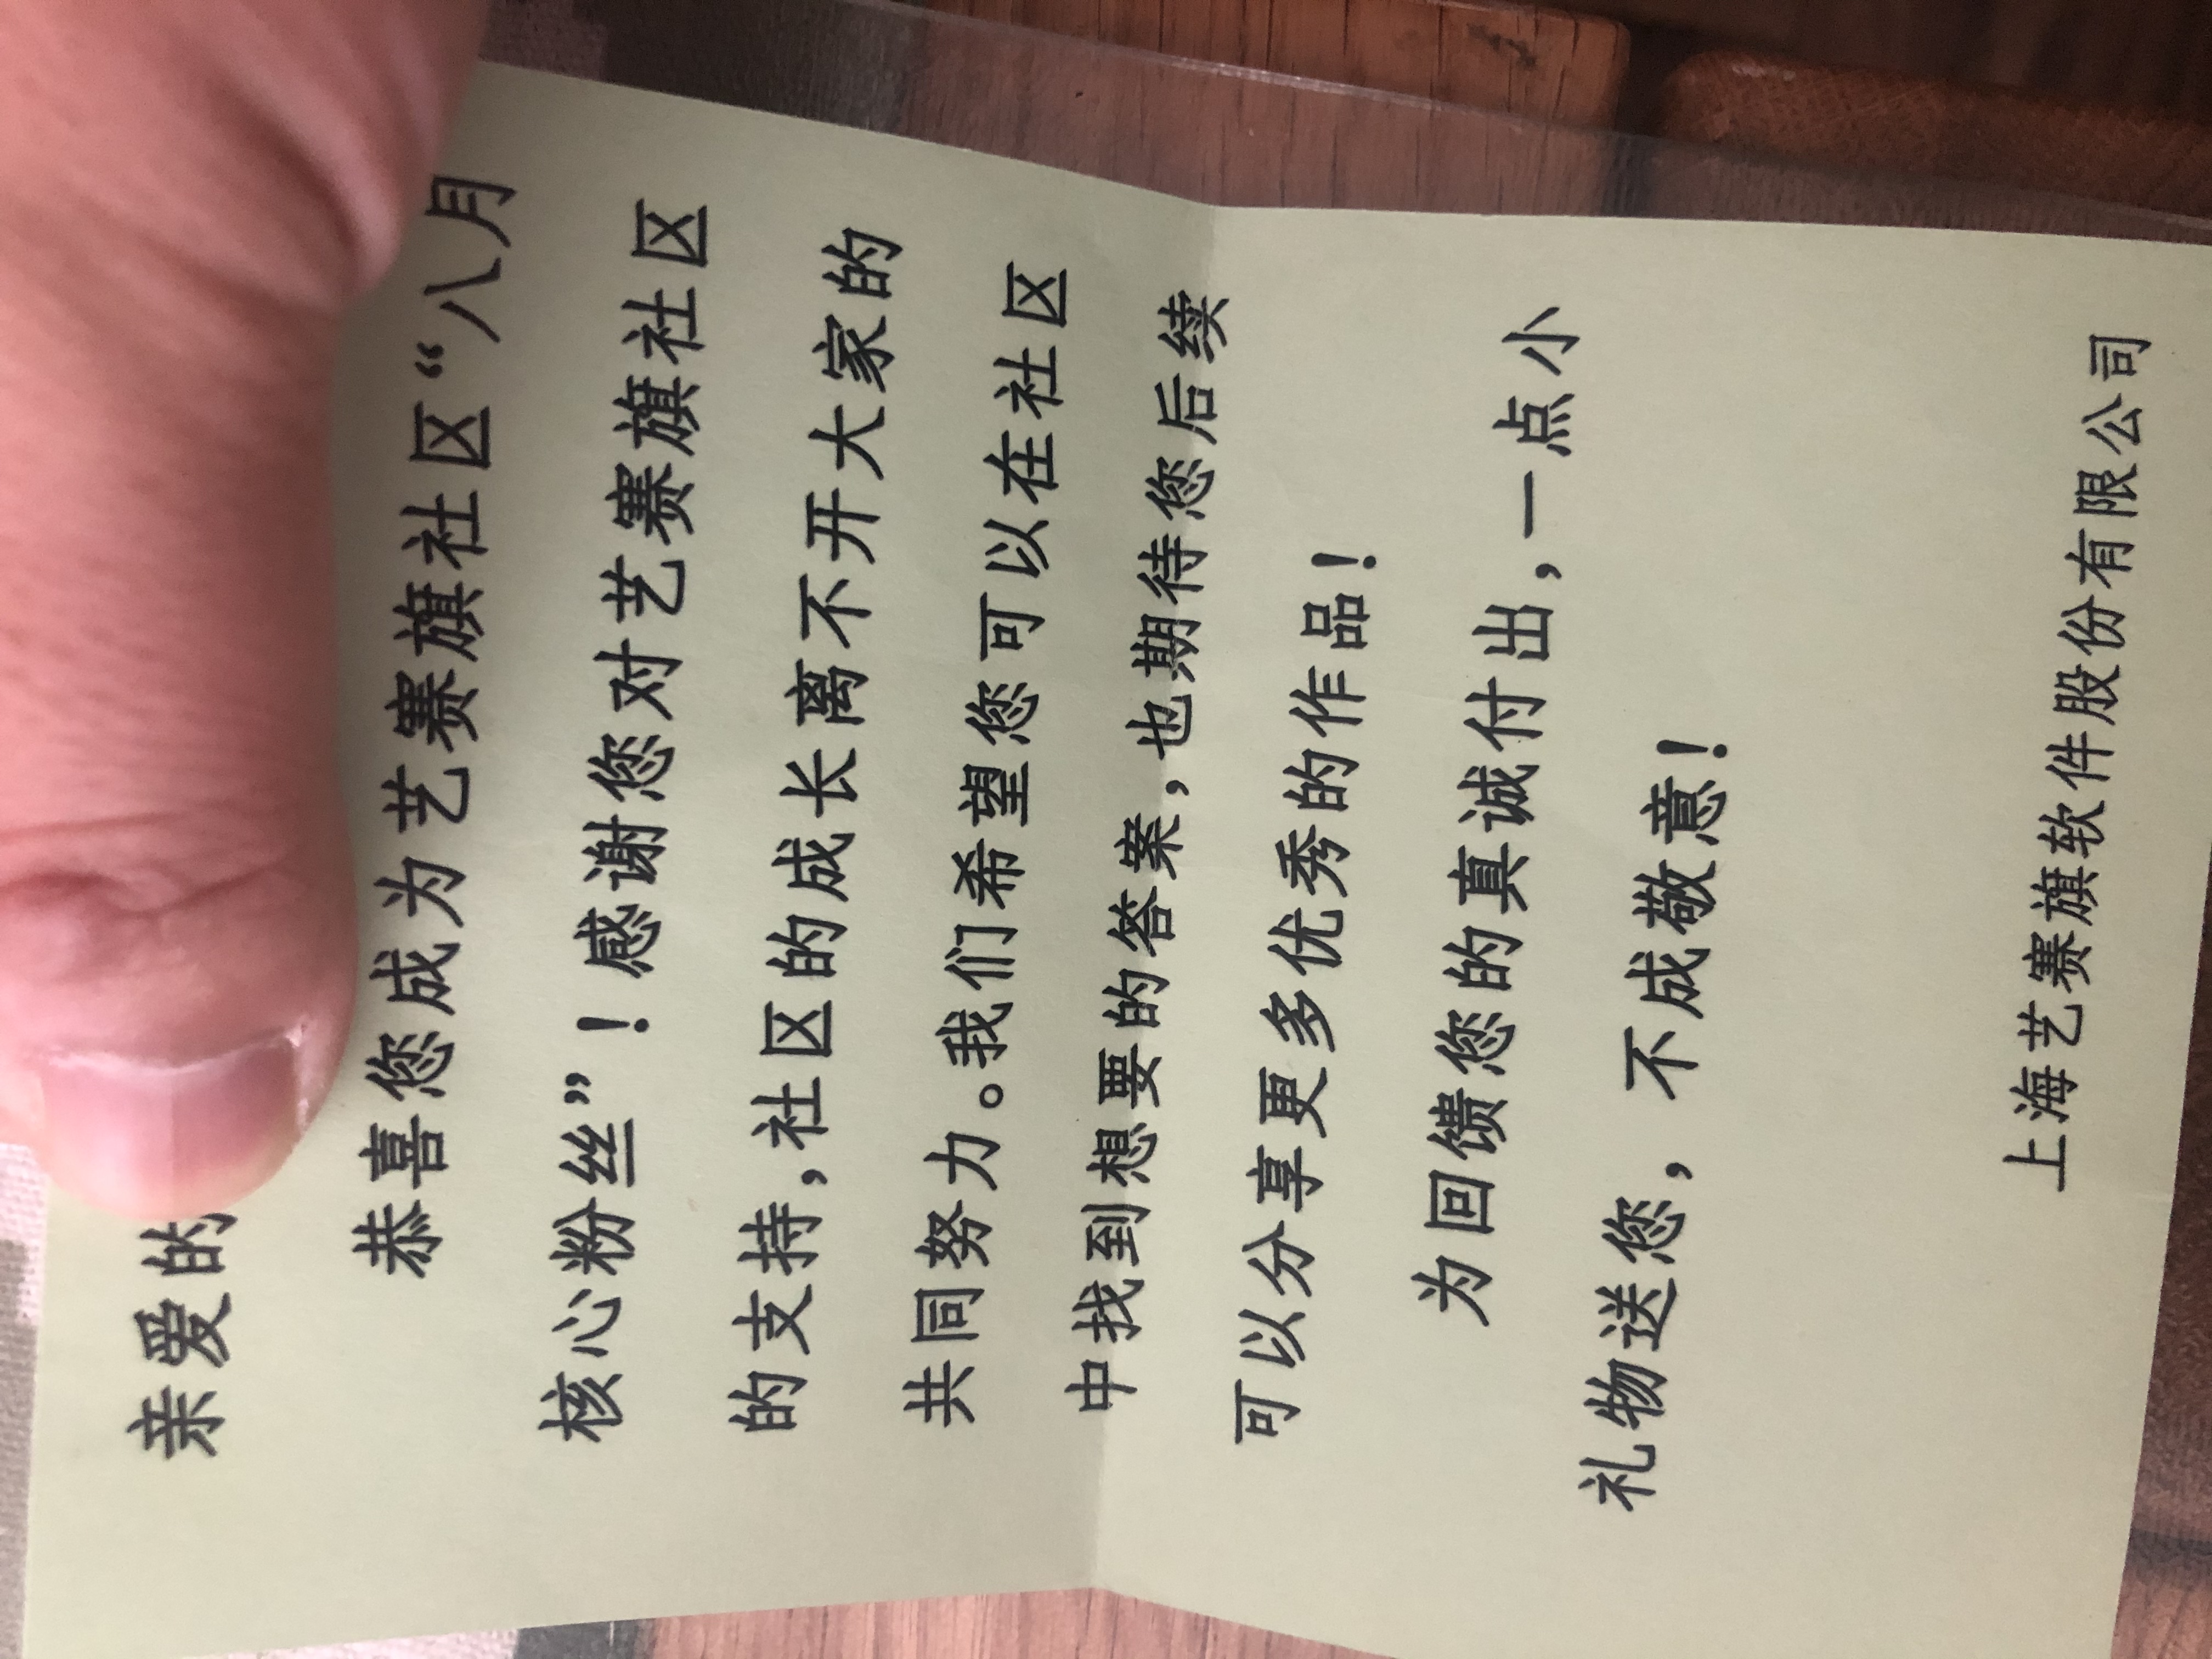 亲爱的
恭喜您成为艺赛旗社区“八月
核心粉丝”！感谢您对艺赛旗社区
的支持，社区的成长离不开大家的
共同努力。我们希望您可以在社区
中找到想要的答案，也期待您后续
可以分享更多优秀的作品！
为回馈您的真诚付出，一点小
礼物送您，不成敬意！
上海艺赛旗软件股份有限公司